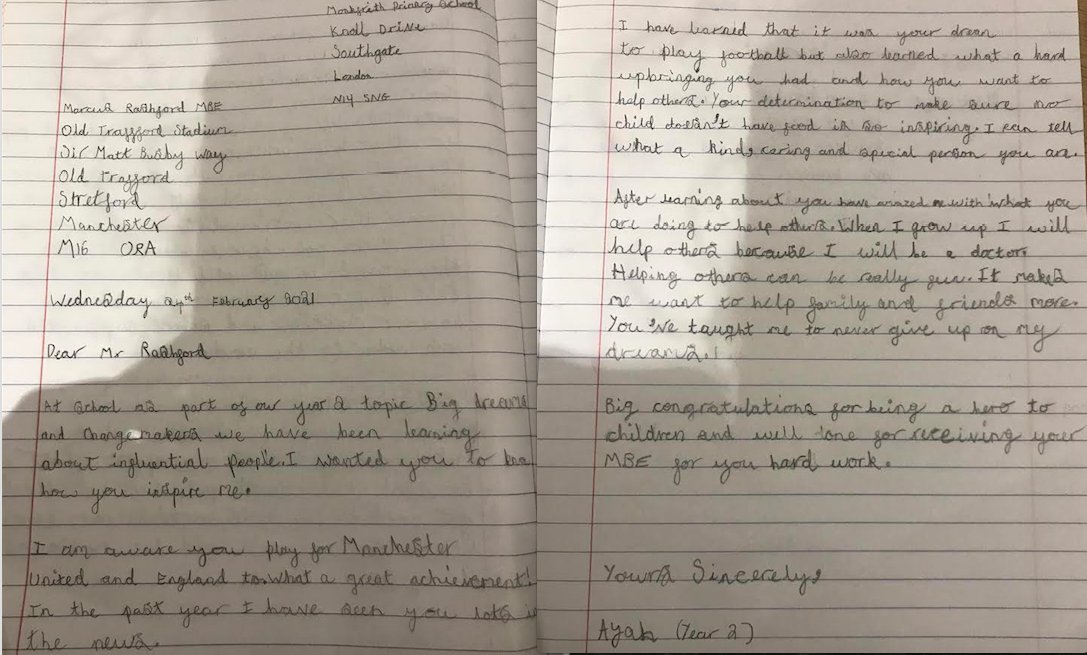 Monkfrith Primary School
Knoll Drive
Southgate
London
N14 5NG
Marcus Rashford MBE
Old Trafford Stadium
Sir Matt Busby Way
Old Trafford
Stretford
Manchester
M16 ORA
Wednesday 24th February 2021
Dear Mr Rashford
At school as part of our year 2 topic Big dreams
and Changemakers we have been learning
about influential people. I wanted you to
how you inspire me.
I am aware you play for Manchester
United and England to. What a great achievement!
In the past year I have seen you lots
the news.
I have learned that it was your dream
to play football but also learned what a hard
upbringing you had and how you want to
help others. Your determination to make sure no
child doesn't have food is so inspiring. I can tell
what a kind, caring and special person you are.
After learning about you have amazed me with what you
are doing to help others. When I grow up I will
help others because I will be a doctor.
Helping others can be really fun. It makes
me want to help family and friends more.
You've taught me to never give up on my
dreams.!
Big congratulations for being a hero to
children and well done for receiving your
MBE for you hard work.
Yours Sincerely,
Ayah (Year 2)